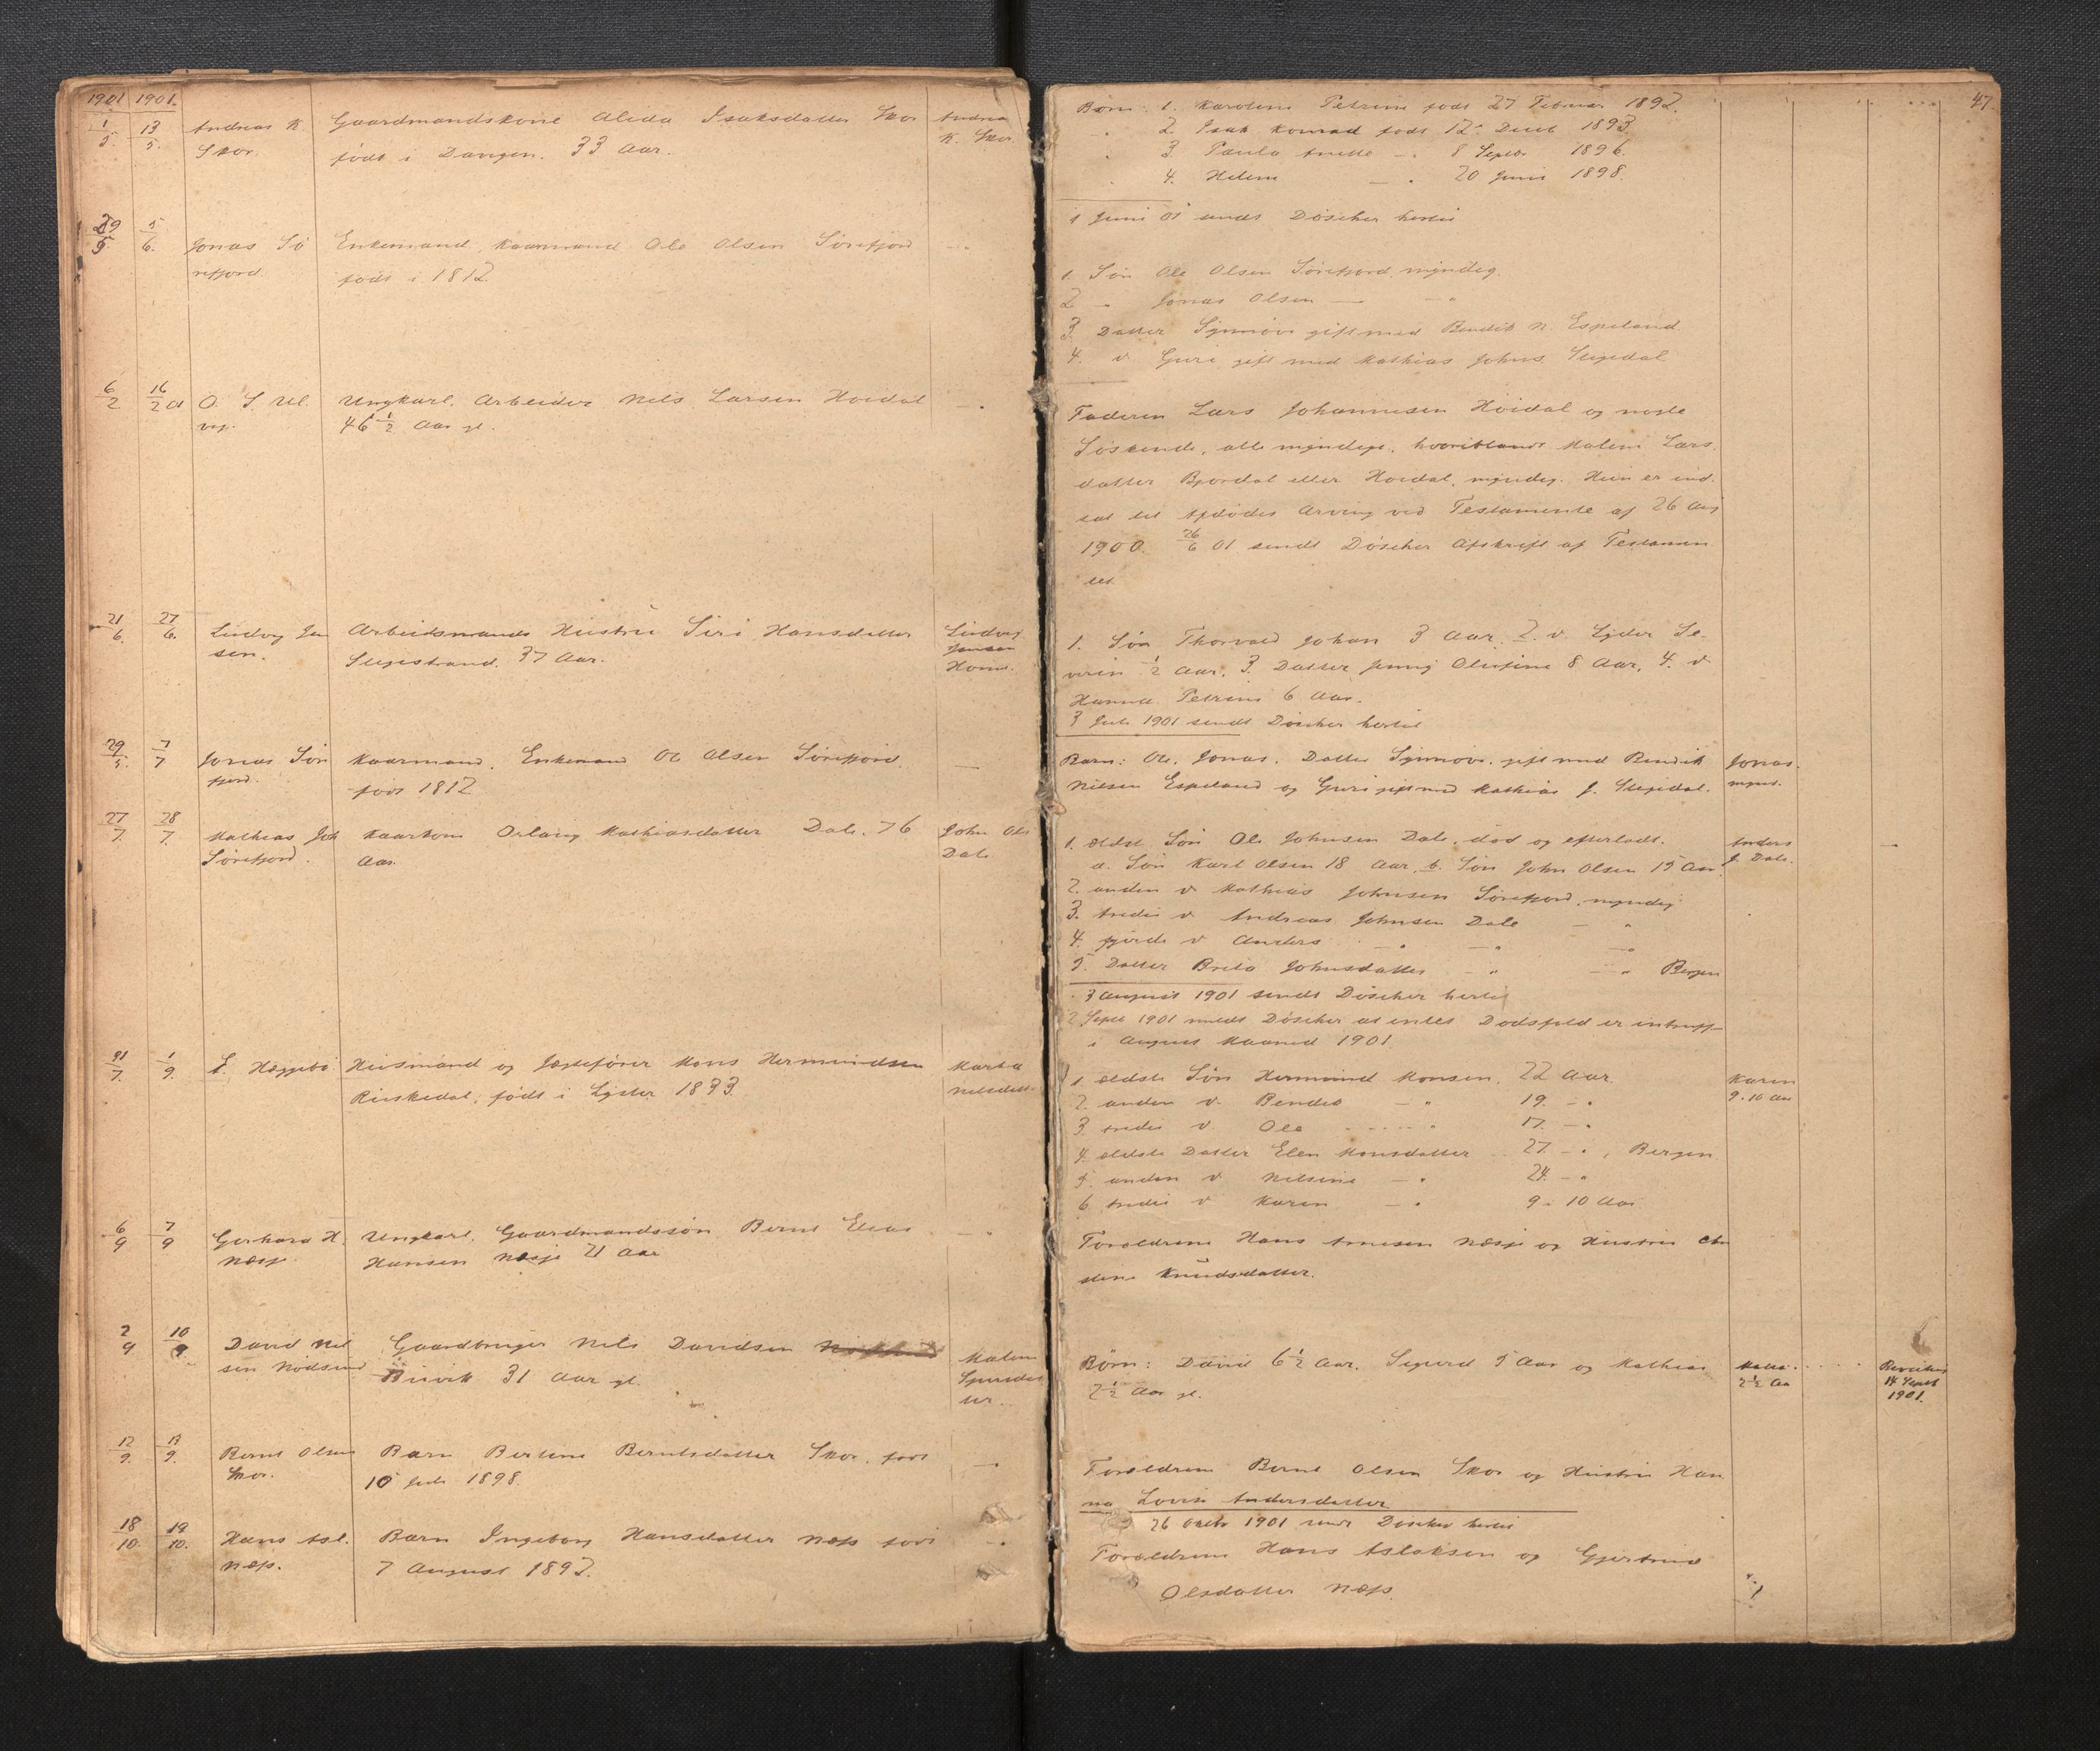 1901 1901.
1/5. 13/5. Andreas K Gaardmandskone Alida Isaksdatter Skor Andrea
Skor. født i Davigen. 33 Aar. K. Skor.
29/5. 5/6. Jonas Sö Enkemand, Kaarmand Ole Olsen Sörefjord —
refjord. født i 1812.
6/2 16/2 O. S. Ul. Ungkarl. Arbeider Nels Larsen Hoidal —
veg. 46 1/2 Aar gl.
21/6. 27/6. Ludvig Jen Arbeidsmands Hustru Siri Hansdatter Ludvig
sen. Slegestrand. 37 Aar. Jensen
Horne.
29/5. 7/7 Jonas Sör Kaarmand, Enkemand Ol Olsen Sörefjord. —
fjord. født 1812
27/7. 28/7. Mathias Joh Kaarkone Orlaug Mathiasdatter Dale. 76 John Ols
Sörefjord. Aar. Dale
31/7. 1/9. L. Hæggebö Husmand og Jægtefører Mons Hermundsen Marta
Riiskedal, født i Lyster 1833. Nilsdatt
6/9 7/9 Gerhard H. Ungkarl, Gaardmandssön Bernt Elias —
Næsje Hansen Næsje 21 Aar
2/9 10/9. David Nel Gaardbruger Nels Davidsen
sen Nødsund Buvik 31 Aar gl. Malene
Sjursdat
ter.
12/9. 13/9. Bernt Olsen Barn Bertine Berntsdatter Skor, født —
Skor. 10 Juli 1898.
18/10. 19/10. Hans Asl. Barn Ingeborg Hansdatter Næss født —
Næss. 7 August 1892.
47.
Børn: 1. Karoline Petrine født 27 Februar 1892.
2. Isak Konrad født 12. Decb 1893.
3. Paula Anette — 8 Septbr 1896.
4. Helene — 20 Juni 1898.
1 Juni 01 sendt Döscher hertil
1. Sön Ole Olsen Sörefjord, myndig.
2 — Jonas Olsen — — "
3. Datter Synnöve gift med Bendik N. Espeland
4. d. Guri gift med Mathias Johns. Slegedal
Faderen Lars Johannesen Hoidal og nogle
Söskende, alle myndige, hvoriblandt Malene Lars.
datter Bjordal eller Hoidal, myndig. Hun er ind.
sat til Afdødes Arving ved Testamente af 26 Aug
1900. 26/6 01 sendt Döscher Afskrift af Testamen
tet
1. Sön Thorvald Johan 3 Aar. 2. d. Lyder Se-
verin 1/2 Aar, 3. Datter Jenny Olufine 8 Aar, 4. d
Hanna Petrine 6 Aar.
3 Juli 1901 sendt Döscher hertil
Barn: Ole, Jonas, Datter Synnöve, gift med Bendik Jonas.
Nilsen Espeland og Guri gift med Mathias J. Slegedal. mynd.
1. Ældst. Sön Ole Johnsen Dale, död og efterladt. Anders
a. Sön Karl Olsen 18 Aar, b. Sön John Olsen 15 Aar. J. Dale.
2. anden d Mathias Johnsen Sörefjord, myndig
3. tredie d Andreas Johnsen Dale — "
4. fjerde d Anders — " — " — "
5. Datter Brita Johnsdatter — " — " Bergen
3 August 1901 sendt Döscher hertil
2 Septb 1901 meldt Döscher at intet Dødsfald er indtruff
i August Maaned 1901.
1. ældste Sön Hermund Monsen. 22 Aar. Karen
2. anden d. Bendik — " 19. — " 9-10 Aar
3. tredie d Ole — " 17. — "
4. ældste Datter Elen Monsdatter 27 — ", Bergen
5. anden d Nilsine — " 24. — "
6. tredie d Karen — " 9-10 Aar
Forældrene Hans Arnesen Næsje og Hustru Chr
stine Knudsdatter.
Børn: David 6 1/2 Aar, Sigurd 5 Aar og Mathias
2 1/2 Aar gl. 2 1/2 Aar 14 Septb
1901.
Forældrene Bernt Olsen Skor og Hustru Han
na Lovise Andersdatter
26 Octbr 1901 sendt Döscher hertil
Forældrene Hans Aslaksen og Gjertrud
Olsdatter Næss.